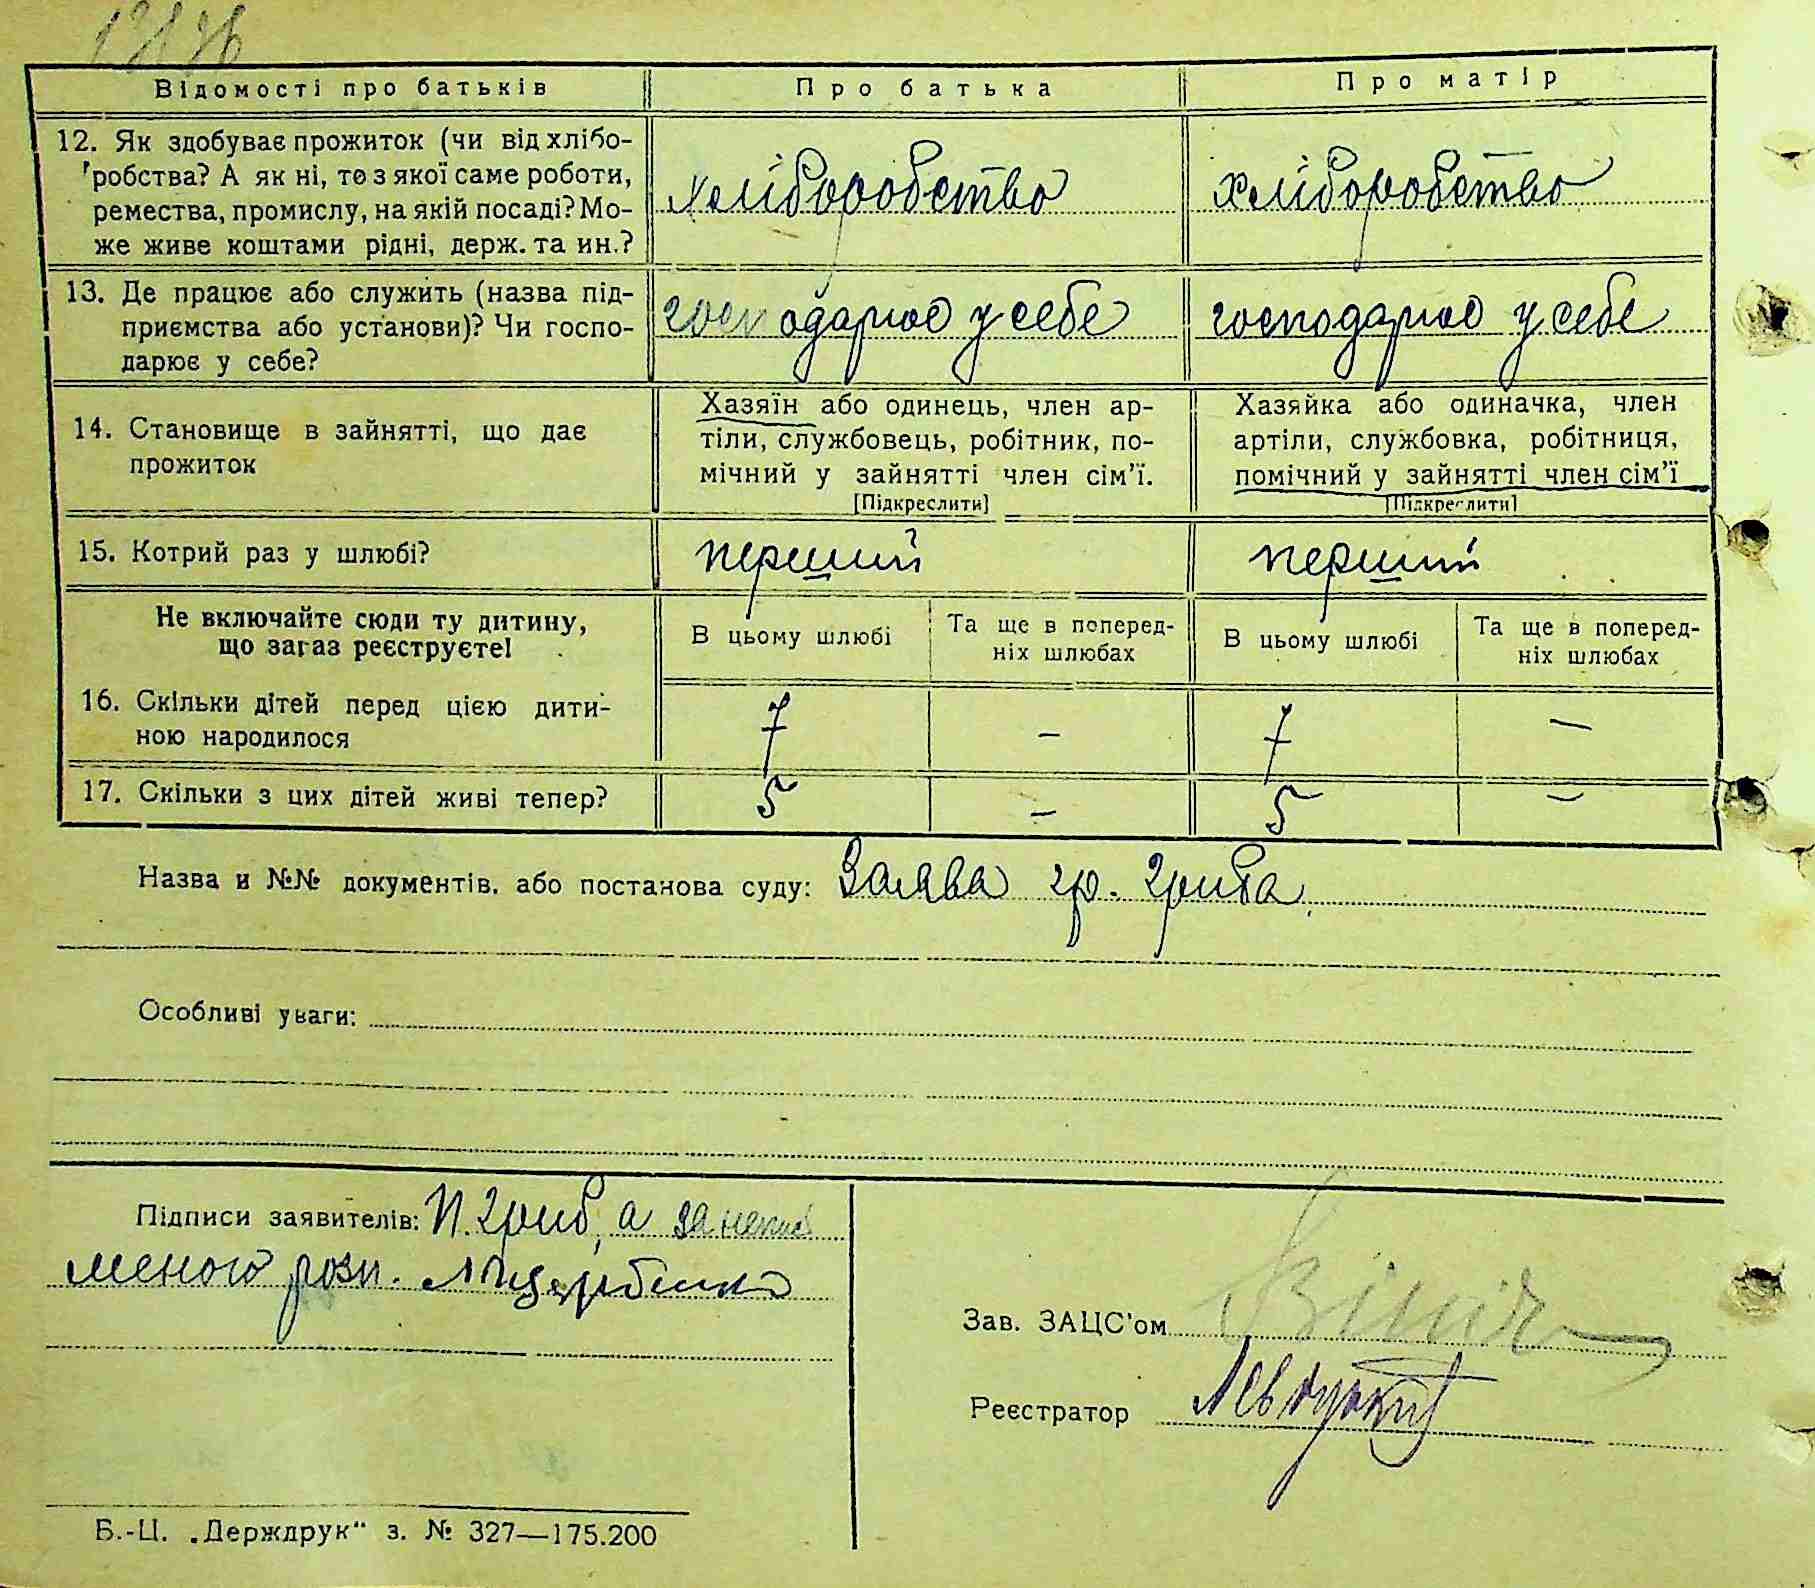 Відомості про батьків
Про батька
Про матір
12. Як здобуває прожиток (чи від хлібо-
робства? А як ні, то з якої саме роботи,
ремества, промислу, на якій посаді? Мо-
же живе коштами рідні, держ. та ин.?
хліборобство
хліборобство
13. Де працює або служить (назва під-
приємства або установи)? Чи госпо-
дарює у себе?
господарює у себе
господарює у себе
14. Становище в зайнятті, що дає
прожиток
Хазяїн або одинець, член ар-
тіли, службовець, робітник, по-
мічний у зайнятті член сім'ї.
[Підкреслити]
Хазяйка або одиначка, член
артіли, службовка, робітниця,
помічний у зайнятті член сім'ї
[Підкреслити]
15. Котрий раз у шлюбі?
перший
перший
Не включайте сюди ту дитину,
що зараз реєструєте!
В цьому шлюбі
Та ще в поперед-
ніх шлюбах
В цьому шлюбі
Та ще в поперед-
ніх шлюбах
16. Скільки дітей перед цією дити-
ною народилося
7
—
7
—
17. Скільки з цих дітей живі тепер?
5
—
5
—
Назва и №№ документів, або постанова суду: Заява гр. Гриба
Особливі уваги:
Підписи заявителів: П. Гриб, а за непис
меного розп.
Зав. ЗАЦС'ом
Реєстратор
Б.-Ц. „Держдрук" з. № 327—175.200